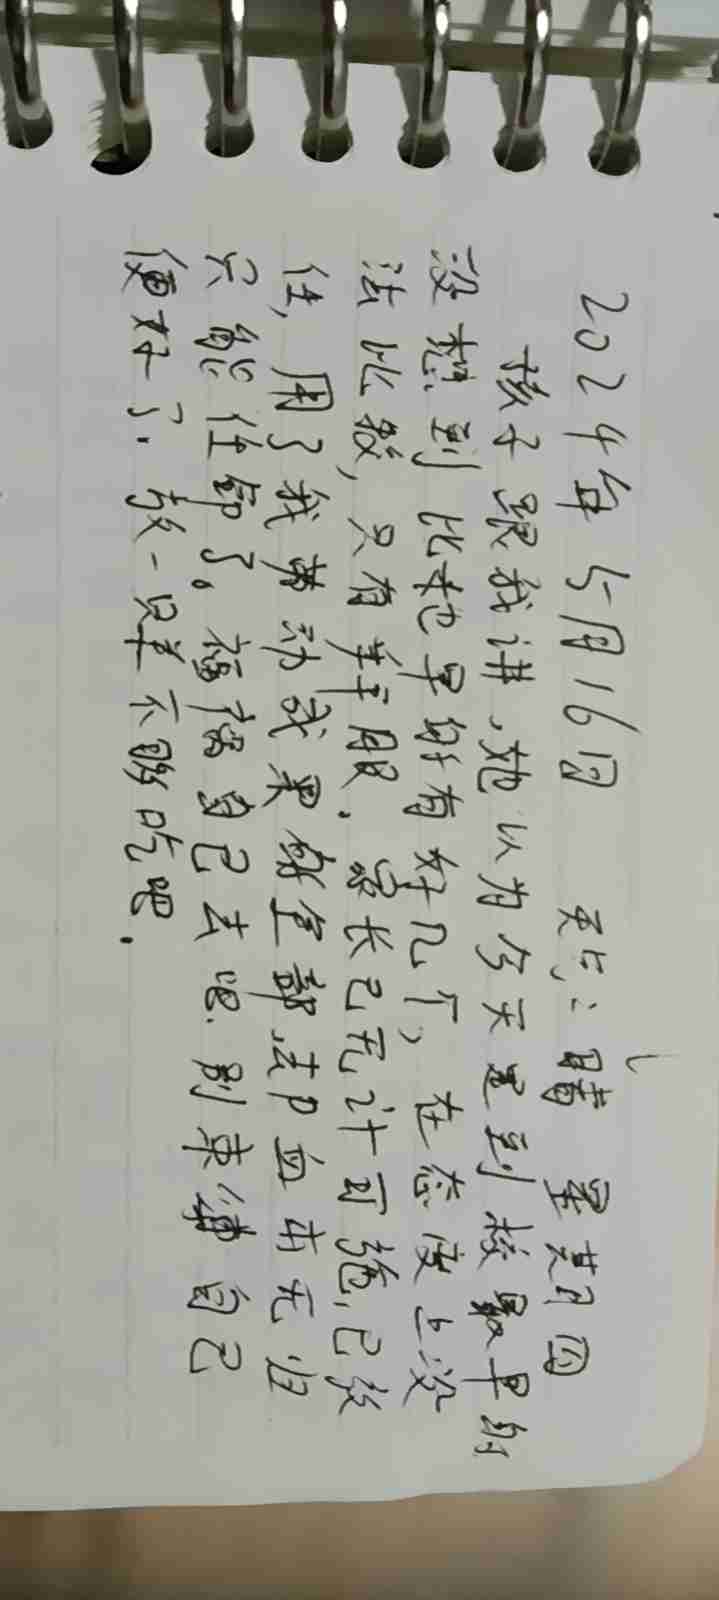 2024年5月16日 天气:晴 星期四
孩子跟我讲,她以为今天是到校最早的
没想到比她早的有好几个,在态度上没
法比较,只有羊服.家长已无计可施,已放
任,用了我劳动成果 全部 血本无归
只能住 了。福 自己去吧.别来 自己
便好了.放一只羊不够吃吧.